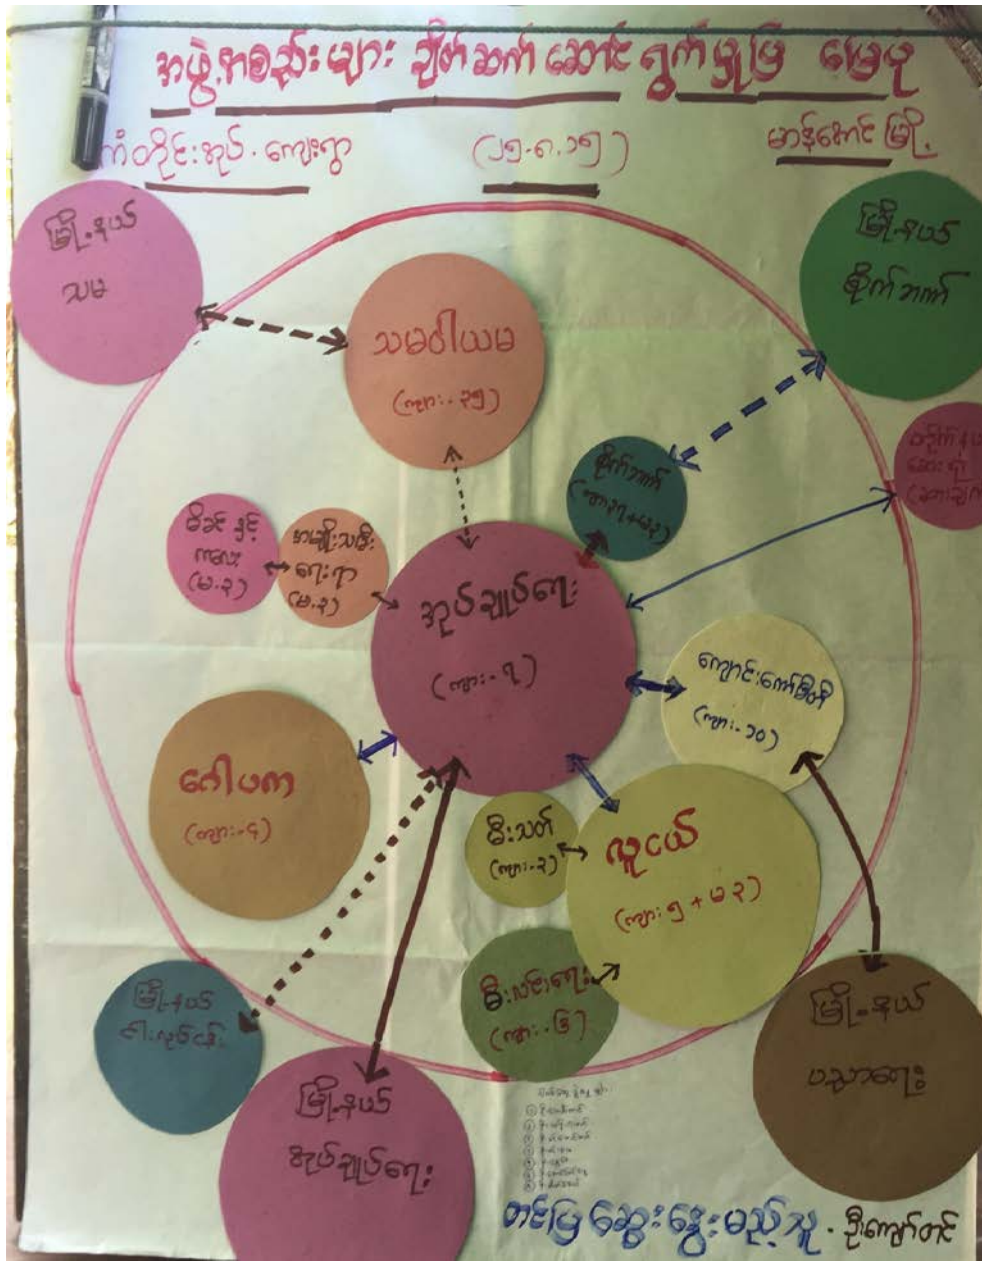 အဖွဲ့အစည်းများ ချိတ်ဆက်ဆောင်ရွက်မှုပြ မြေပုံ
ကံတိုင်းအုပ်.ကျေးရွာ (၁၅-၈.၁၅) မာန်အောင်မြို့
မြို့နယ်
သမ
မြို့နယ်
စိုက်ဘဏ်
သမဝါယမ
(ကျား-၃၅)
စိုက်ဘဏ်
မိခင်နှင့်
ကလေး
(မ.၃)
အမျိုးသမီး
ရေးရာ
(မ.၃)
အုပ်ချုပ်ရေး
(ကျား-၇)
ကျောင်းကော်မီတီ
(ကျား-၁၀)
ဂေါပက
(ကျား-၄)
မီးသတ်
(ကျား-၃)
လူငယ်
(ကျား ၅+မ ၃)
မီးလင်းရေး
မြို့နယ်
ငါးလုပ်ငန်း
မြို့နယ်
ပညာရေး
မြို့နယ်
အုပ်ချုပ်ရေး
တင်ပြဆွေးနွေးမည့်သူ - ဦးကျော်တင်